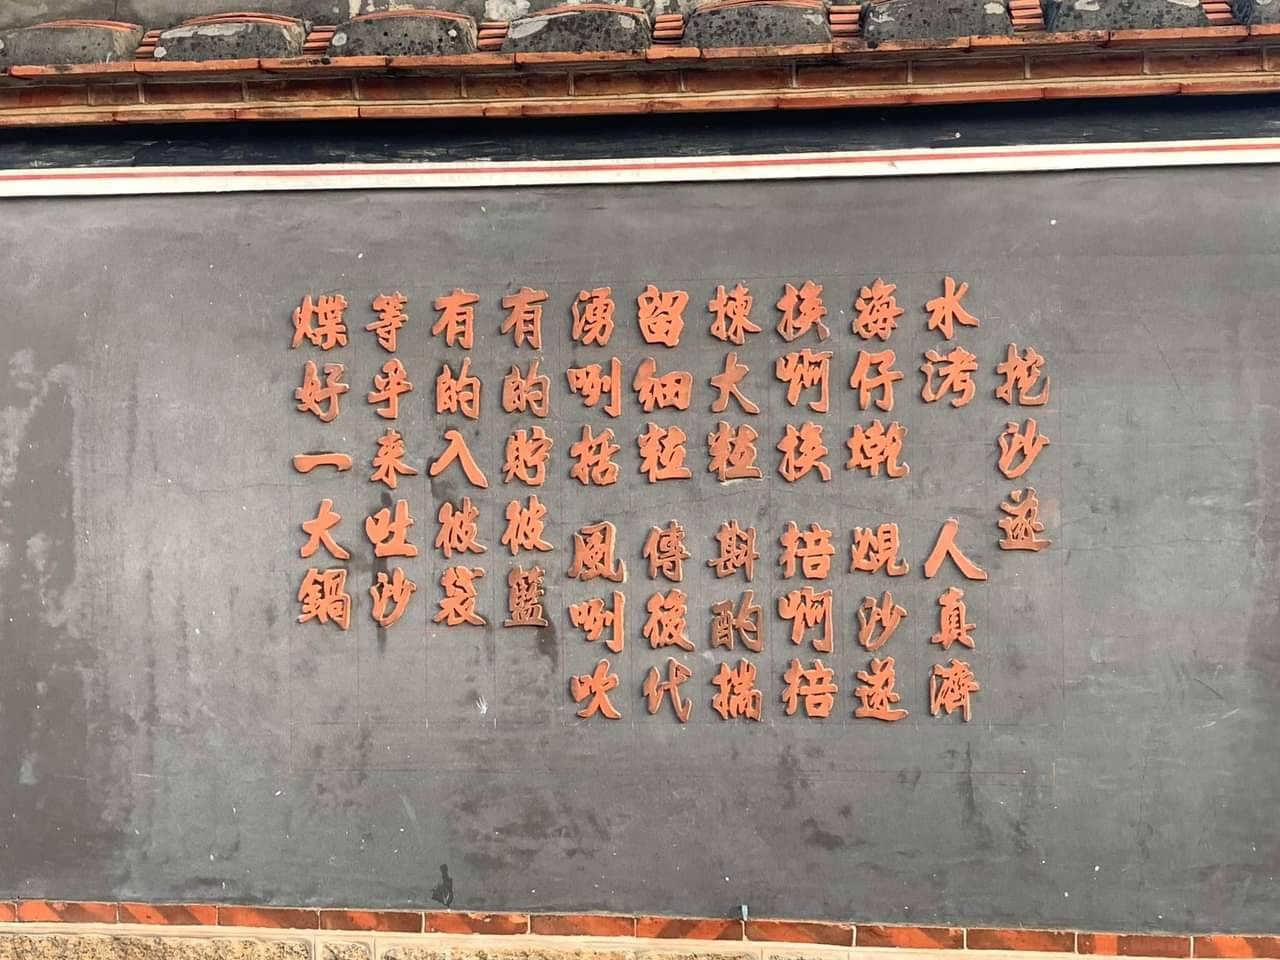 挖沙蓫
水洘 人真濟
海仔墘 覕沙蓫
挨啊挨 掊啊掊
揀大粒 斟酌揣
留細粒 傳後代
湧咧括 風咧吹
有的貯彼籃
有的入彼袋
等乎來吐沙
煠好一大鍋